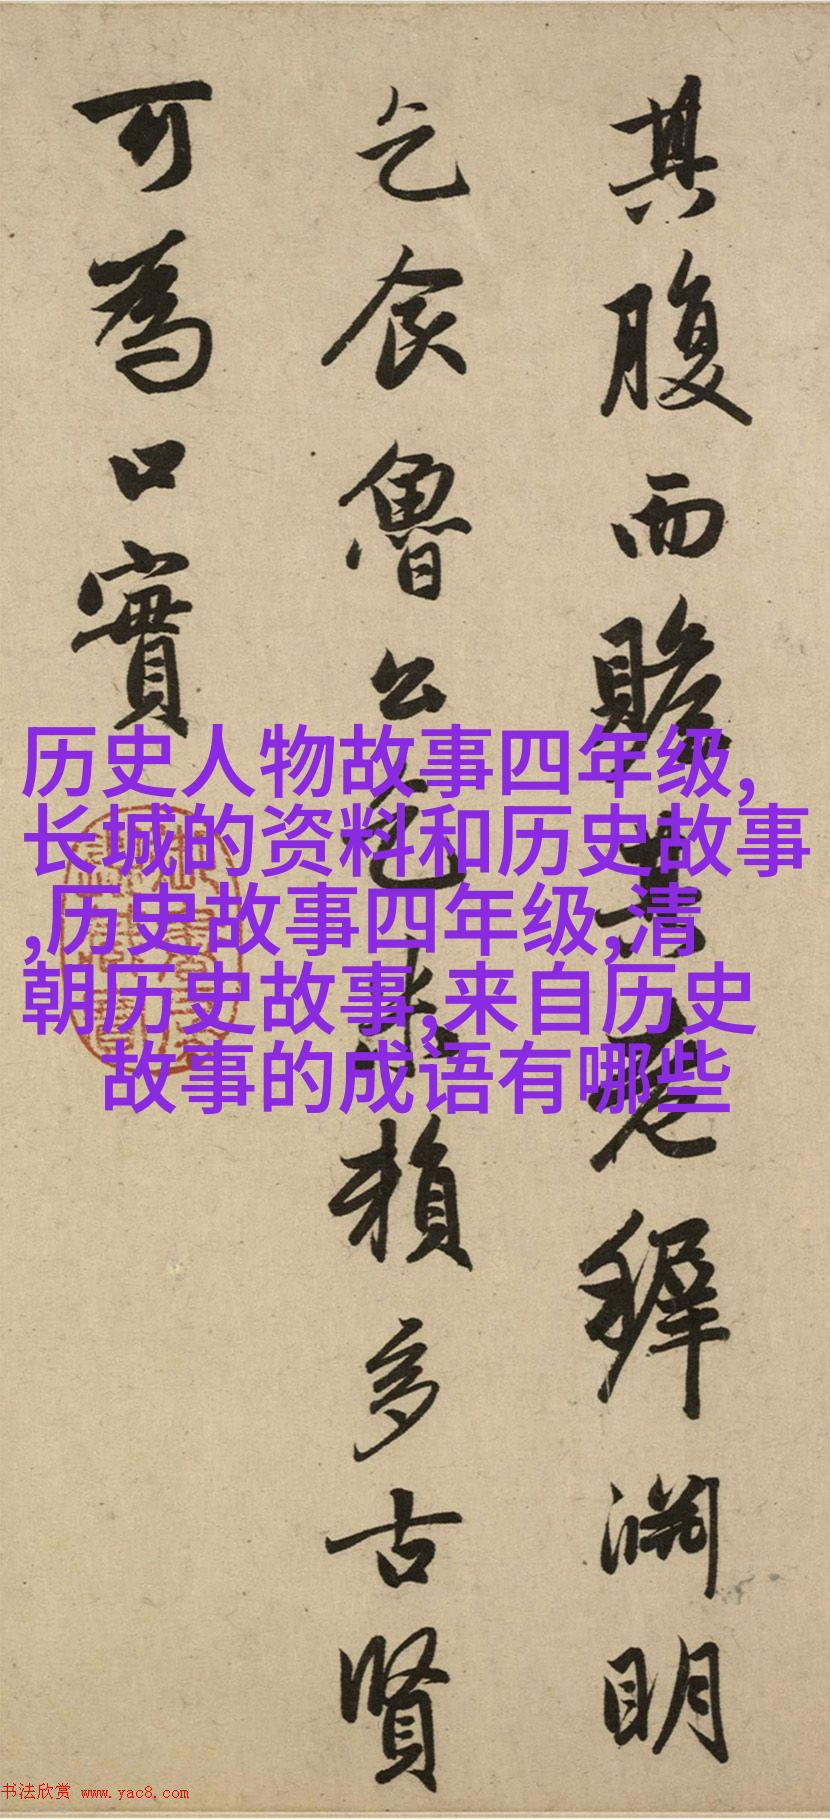 其腹而贍其老穉淵明
乞食魯公乞米賴多古賢
可為口實
历史人物故事四年级,
长城的资料和历史故事
,历史故事四年级,清
朝历史故事,来自历史
故事的成语有哪些
书法欣赏 www.yac8.com